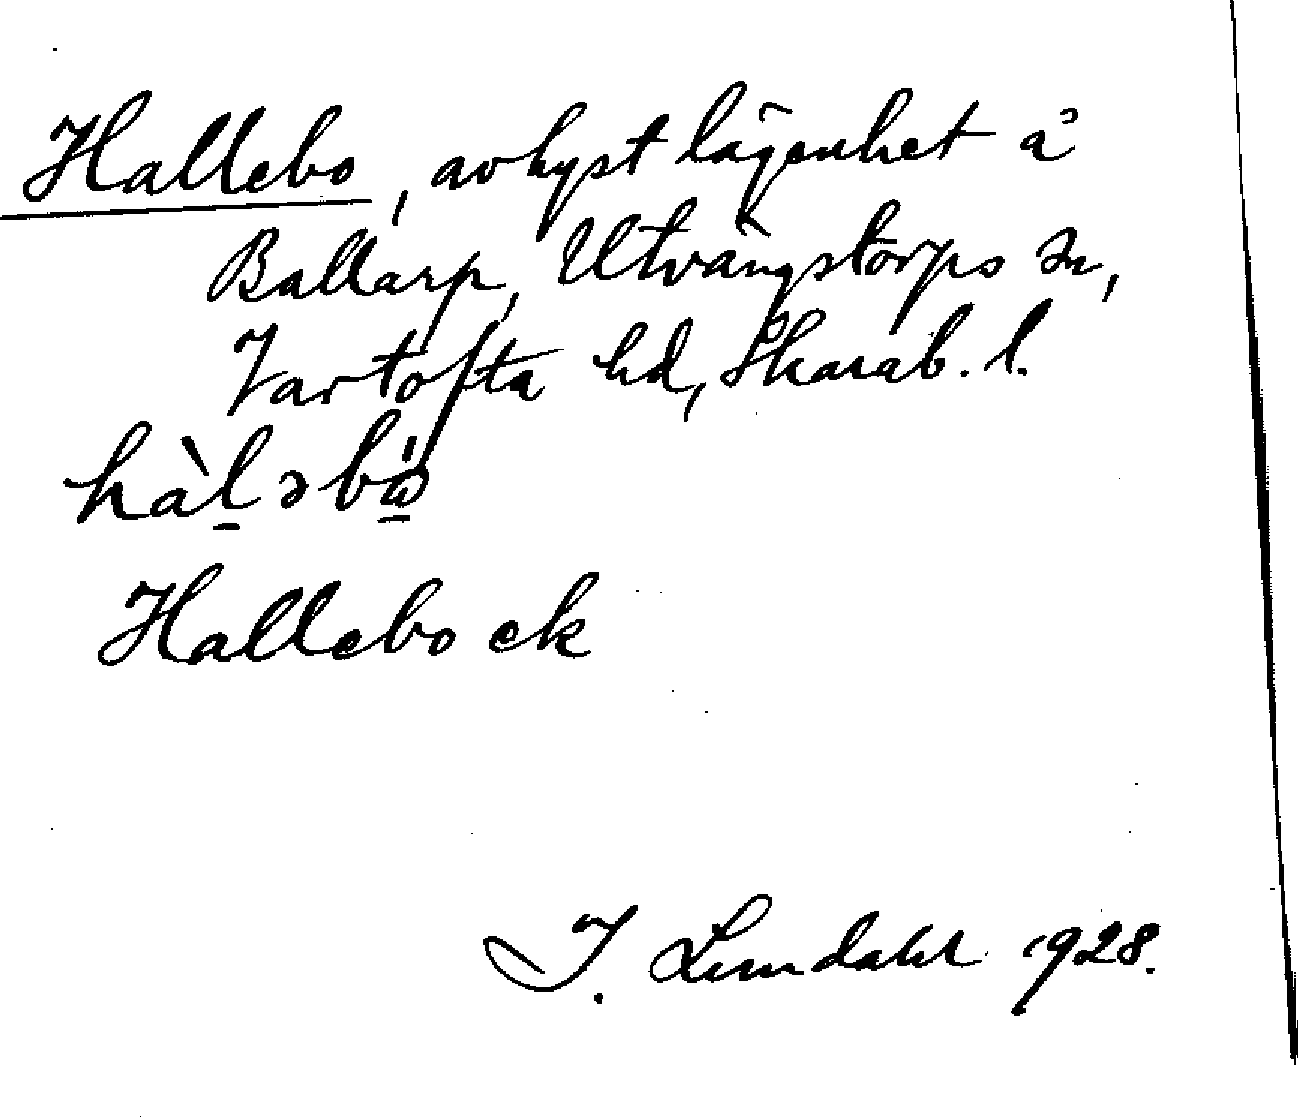 Hallebo, avhyst lägenhet å
Ballarp, Utvängstorps sn,
Vartofta hd, Skarab. l.
hàl̠əbä̠
Hallebo ek
J. Lindahl 1928.